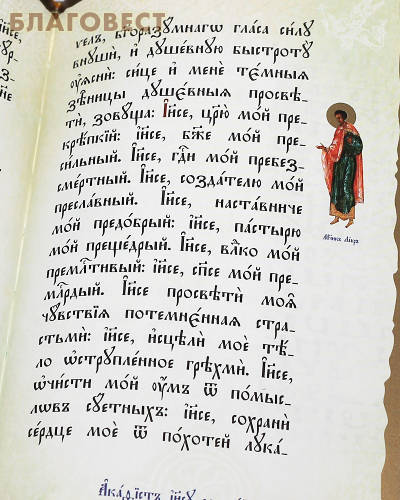 БЛАГОВЕСТ
ᲂу҆́елъ, бг҃оразꙋ́мнагѡ гла́са си́лꙋ
внꙋши́, и҆ дꙋше́внꙋю быстротꙋ̀
ᲂу҆ѧснѝ: си́це и҆ менє̀ тє́мныѧ
зѣ́ницы дꙋшє́вныѧ просвѣ-
тѝ, зовꙋ́ща: І҆и҃се, цр҃ю̀ мо́й пре-
крѣ́пкїй: і҆и҃се, бж҃е мо́й пре-
си́льный. І҆и҃се, гдⷭ҇и мо́й пребез-
сме́ртный. І҆и҃се, созда́телю мо́й
пресла́вный. І҆и҃се, наста́вниче
мо́й предо́брый: і҆и҃се, па́стырю
мо́й преще́дрый. І҆и҃се, влⷣко мо́й
премлⷭ҇тивый: і҆и҃се, сп҃се мо́й пре-
млⷭ҇рдый. І҆и҃се просвѣтѝ моѧ̑
чꙋ̑вствїѧ потемнє́ннаѧ стра-
стьмѝ: і҆и҃се, и҆сцѣлѝ моѐ тѣ́-
ло ѡ҆стрꙋплє́нное грѣхмѝ. І҆и҃се,
ѡ҆чи́сти мо́й ᲂу҆́мъ ѿ по́мыс-
лѡвъ сꙋ́етныхъ: і҆и҃се, сохранѝ
се́рдце моѐ ѿ по́хотей лꙋка́-
А҆ка́ѳїстъ і҆и҃сꙋ